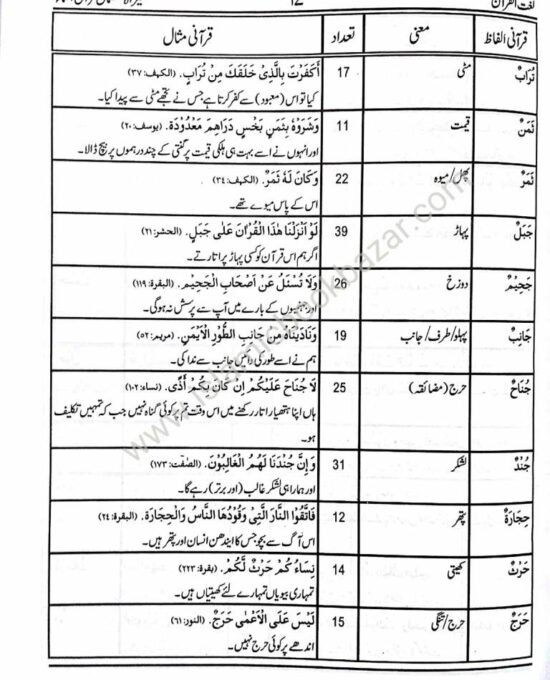 لغت القرآن
12
قرآنی الفاظ | معنی | تعداد | قرآنی مثال
تُرَابٌ | مٹی | 17 | أَكَفَرْتَ بِالَّذِىْ خَلَقَكَ مِنْ تُرَابٍ. (الكهف: ۳۷)
کیا تو اس (معبود) سے کفر کرتا ہے جس نے تجھے مٹی سے پیدا کیا۔
ثَمَنٌ | قیمت | 11 | وَشَرَوْهُ بِثَمَنٍ بَخْسٍ دَرَاهِمَ مَعْدُوْدَةٍ. (یوسف: ۲۰)
اور انہوں نے اسے بہت ہی ہلکی قیمت پر گنتی کے چند درہموں پر بیچ ڈالا۔
ثَمَرٌ | پھل/میوہ | 22 | وَكَانَ لَهُ ثَمَرٌ. (الكهف: ۳۴)
اس کے پاس میوے تھے۔
جَبَلٌ | پہاڑ | 39 | لَوْ اَنْزَلْنَا هٰذَا الْقُرْآنَ عَلٰى جَبَلٍ. (الحشر: ۲۱)
اگر ہم اس قرآن کو کسی پہاڑ پر اتارتے۔
جَحِيْمٌ | دوزخ | 26 | وَلَا تُسْئَلُ عَنْ اَصْحَابِ الْجَحِيْمِ. (البقرة: ۱۱۹)
اور جہنمیوں کے بارے میں آپ سے پرسش نہ ہوگی۔
جَانِبٌ | پہلو/طرف/جانب | 19 | وَنَادَيْنَاهُ مِنْ جَانِبِ الطُّوْرِ الْاَيْمَنِ. (مریم: ۵۲)
ہم نے اسے طور کی دائیں جانب سے ندا کی۔
جُنَاحٌ | حرج (مضائقہ) | 25 | لَا جُنَاحَ عَلَيْكُمْ اِنْ كَانَ بِكُمْ اَذًى. (نساء: ۱۰۲)
ہاں اپنا ہتھیار اتار رکھنے میں اس وقت تم پر کوئی گناہ نہیں جب کہ تمہیں تکلیف
ہو۔
جُنْدٌ | لشکر | 31 | وَاِنَّ جُنْدَنَا لَهُمُ الْغَالِبُوْنَ. (الصّٰفّٰت: ۱۷۳)
اور ہمارا ہی لشکر غالب (اور برتر) رہے گا۔
حِجَارَةٌ | پتھر | 12 | فَاتَّقُوا النَّارَ الَّتِىْ وَقُوْدُهَا النَّاسُ وَالْحِجَارَةُ. (البقرة: ۲۴)
اس آگ سے بچو جس کا ایندھن انسان اور پتھر ہیں۔
حَرْثٌ | کھیتی | 14 | نِسَاءُ كُمْ حَرْثٌ لَّكُمْ. (بقرة: ۲۲۳)
تمہاری بیویاں تمہارے لئے کھیتیاں ہیں۔
حَرَجٌ | حرج/تنگی | 15 | لَيْسَ عَلَى الْاَعْمٰى حَرَجٌ. (النور: ۶۱)
اندھے پر کوئی حرج نہیں۔
www.islamicbookbazar.com